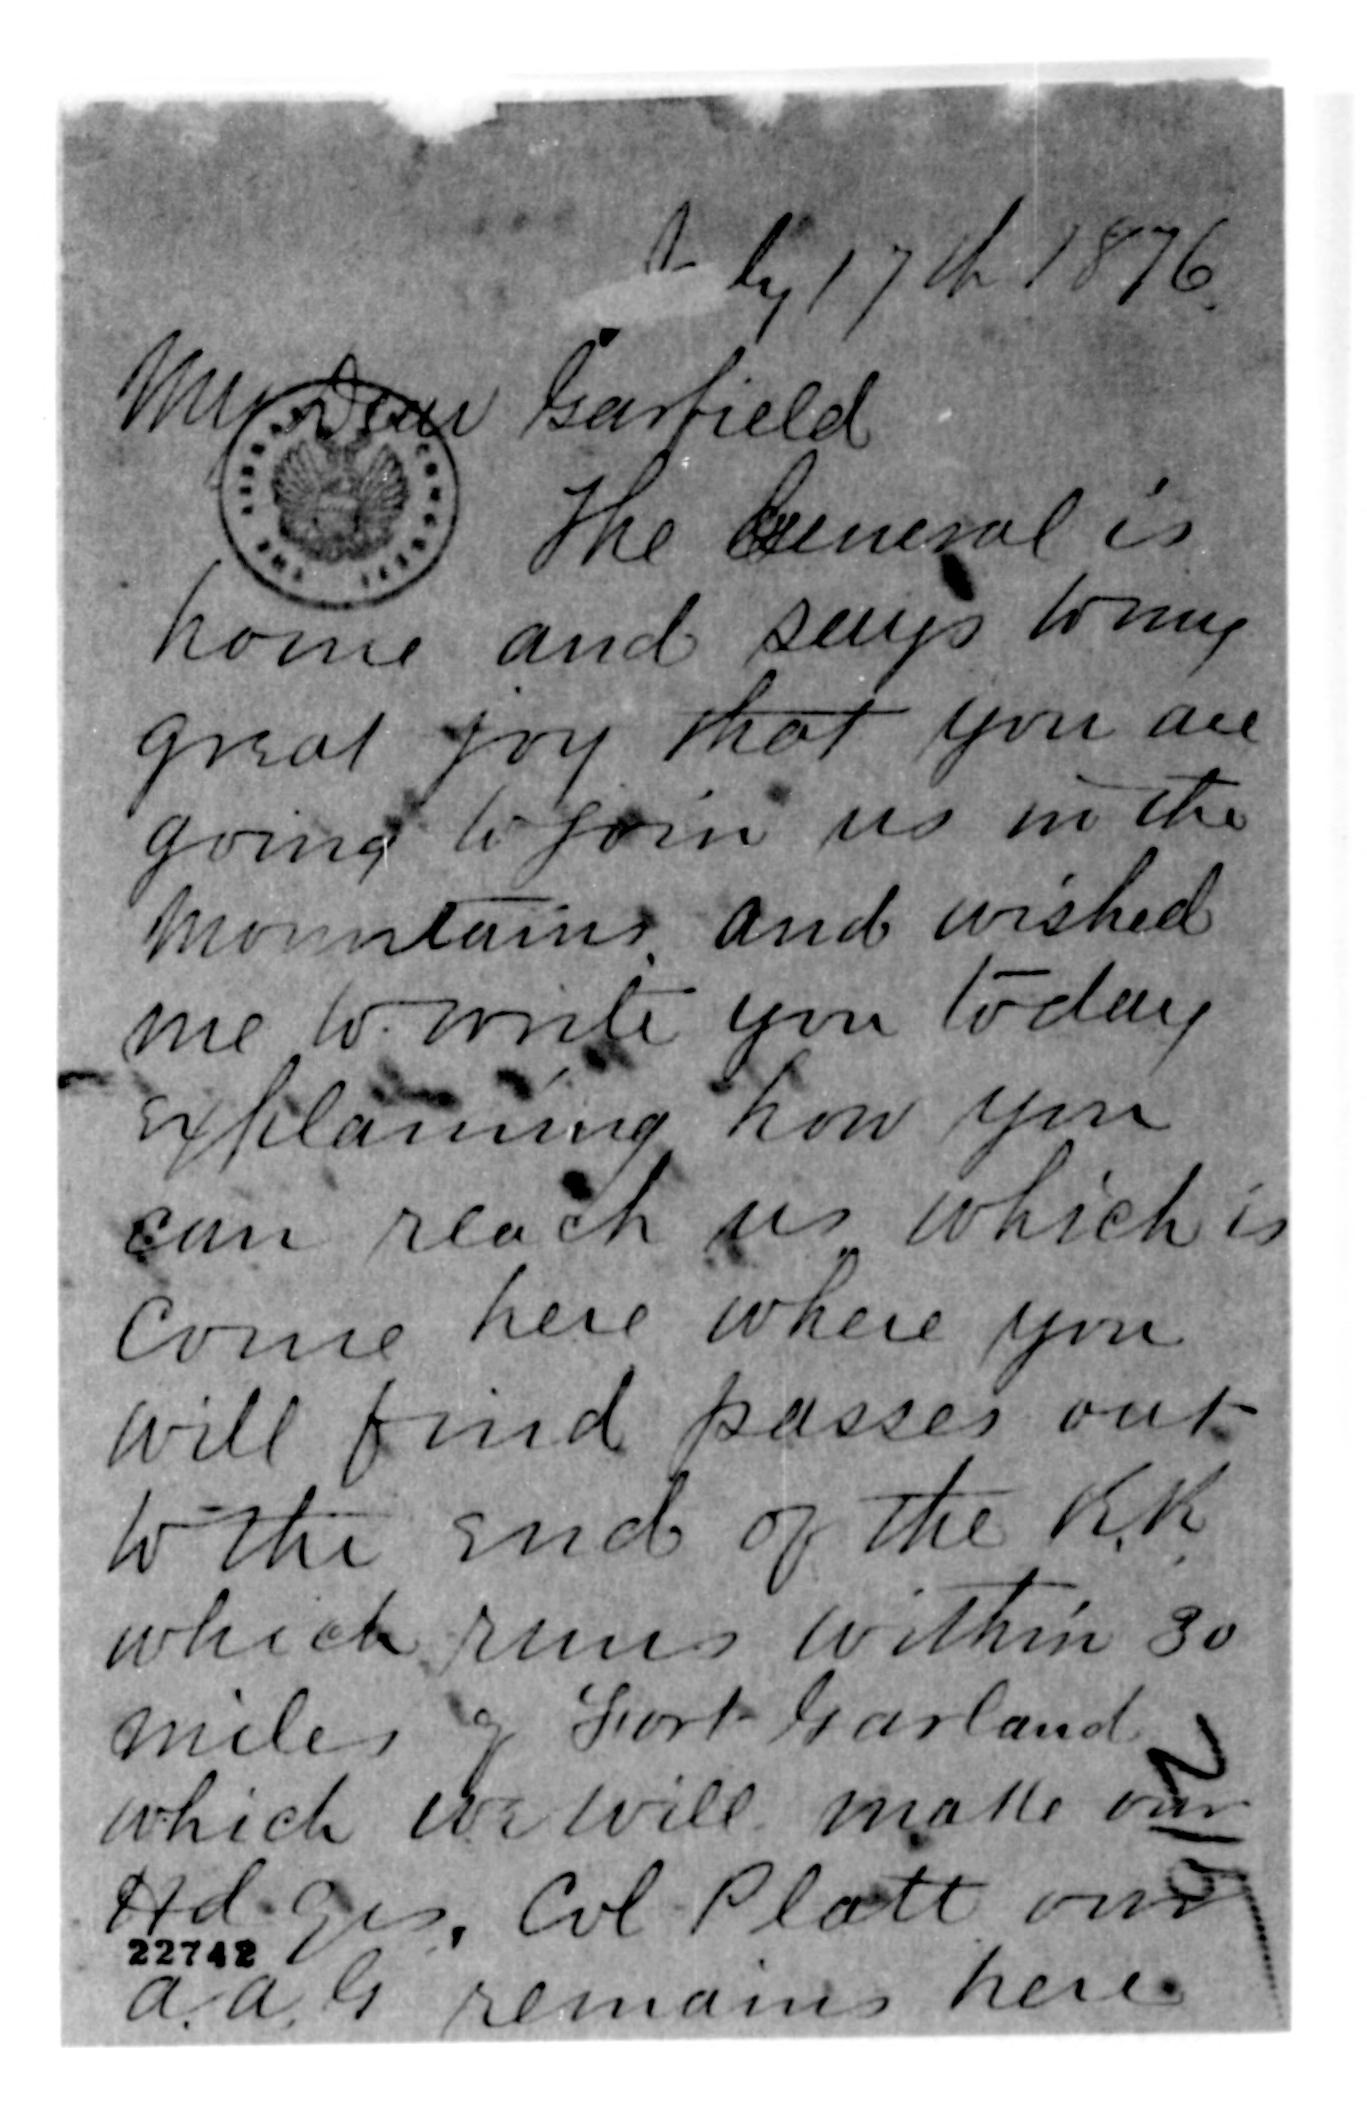 July 17th 1876.
My Dear Garfield
The General is
home and says to my
great joy that you are
going to join us in the
Mountains. and wished
me to write you today
explaining how you
can reach us, which is
Come here where you
will find passes out
to the end of the R.R.
which runs within 30
miles of Fort Garland
which we will make our
Hd. Qrs. Col Platt our
22742
a. a. G remains here.